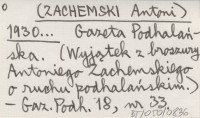 (ZACHEMSKI Antoni)
1930... Gazeta Podhalań-
ska. (Wyjątek z broszury
Antoniego Zachemskiego
o ruchu podhalańskim.)
- Gaz. Podh. 18, nr 33